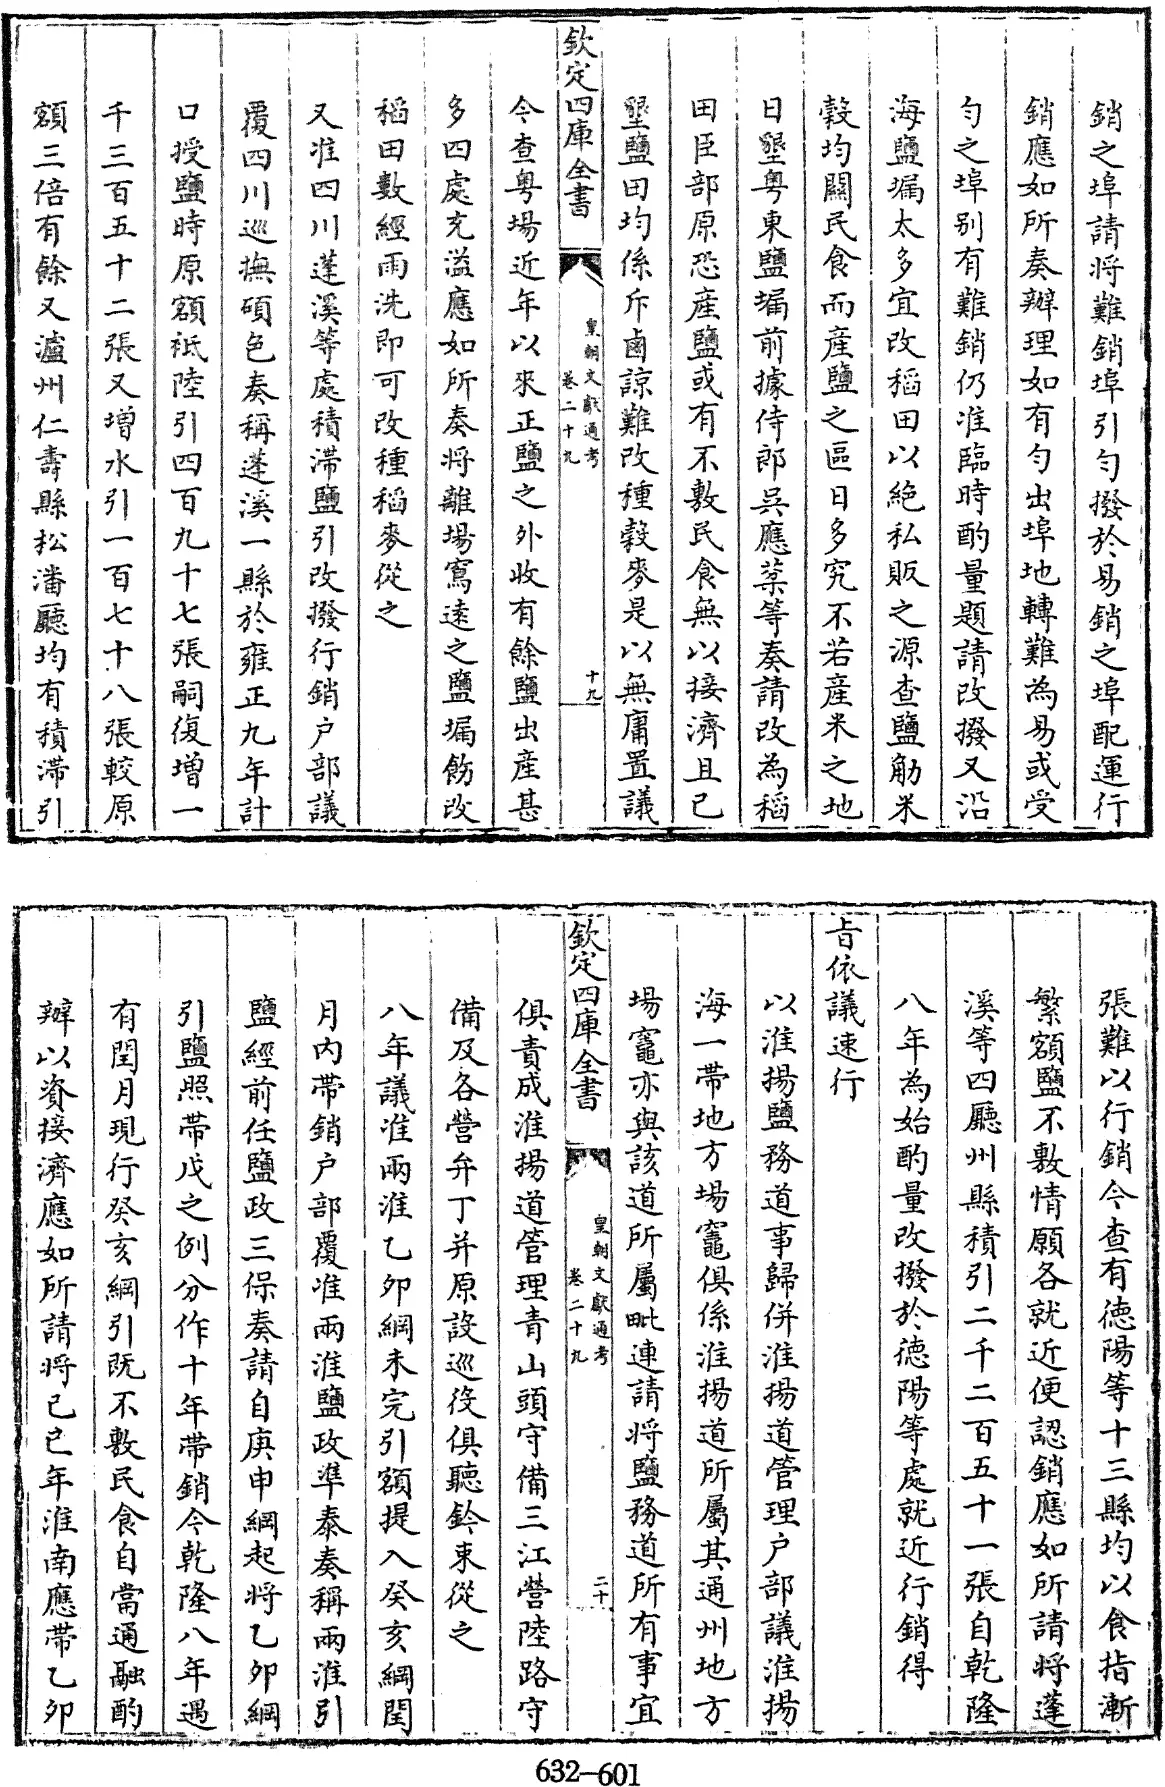 銷之埠請將難銷埠引勻撥於易銷之埠配運行
銷應如所奏辦理如有勻出埠地轉難為易或受
勻之埠別有難銷仍准臨時酌量題請改撥又沿
海鹽漏太多宜改稻田以絶私販之源查鹽觔米
穀均關民食而產鹽之區日多究不若產米之地
日墾粤東鹽塥前據侍郎吳應棻等奏請改為稻
田臣部原恐產鹽或有不敷民食無以接濟且已
墾鹽田均係斥鹵諒難改種穀麥是以無庸置議
欽定四庫全書
皇朝文獻通考
卷二十九
十九
今查粤場近年以來正鹽之外收有餘鹽出產甚
多四處充溢應如所奏將離場窵遠之鹽塥飭改
稻田數經雨洗即可改種稻麥從之
又准四川蓬溪等處積滯鹽引改撥行銷户部議
覆四川巡撫碩色奏稱蓬溪一縣於雍正九年計
口授鹽時原額祗陸引四百九十七張嗣復增一
千三百五十二張又增水引一百七十八張較原
額三倍有餘又瀘州仁壽縣松潘廳均有積滯引
張難以行銷今查有德陽等十三縣均以食指漸
繁額鹽不敷情願各就近便認銷應如所請將蓬
溪等四廳州縣積引二千二百五十一張自乾隆
八年為始酌量改撥於德陽等處就近行銷得
旨依議速行
以淮揚鹽務道事歸併淮揚道管理户部議淮揚
海一帶地方場竈俱係淮揚道所屬其通州地方
場竈亦與該道所屬毗連請將鹽務道所有事宜
欽定四庫全書
皇朝文獻通考
卷二十九
二十
俱責成淮揚道管理青山頭守備三江營陸路守
備及各營弁丁并原設巡役俱聽鈐束從之
八年議准兩淮乙卯綱未完引額提入癸亥綱閏
月内帶銷户部覆准兩淮鹽政準泰奏稱兩淮引
鹽經前任鹽政三保奏請自庚申綱起將乙卯綱
引鹽照帶戊之例分作十年帶銷今乾隆八年遇
有閏月現行癸亥綱引既不敷民食自當通融酌
辦以資接濟應如所請將己巳年淮南應帶乙卯
632-601